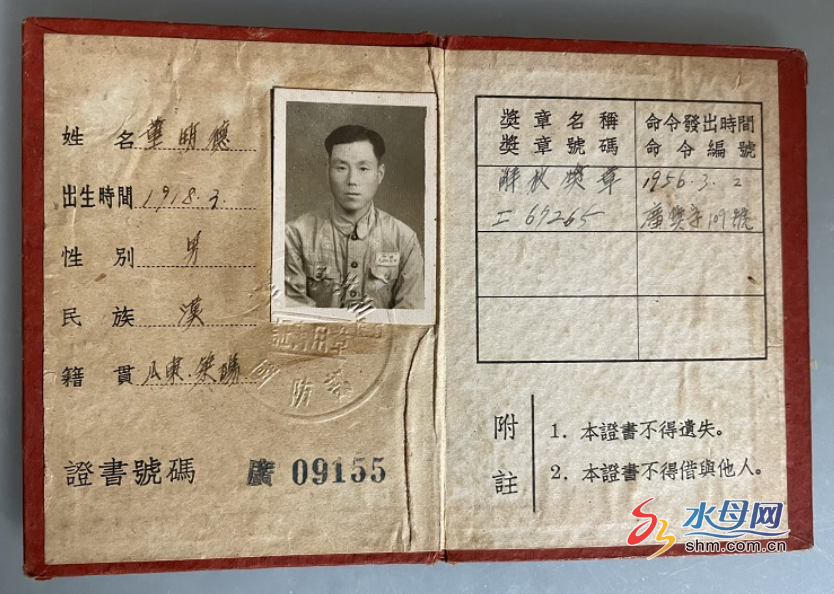 姓名 明德
出生時間 1918.3.
性別 男
民族 漢
籍貫 山東.
證書號碼 廣 09155
獎章名稱 命令發出時間
獎章號碼 命令編號
解放獎章 1956.3.2
工 67265 廣獎字109號
附註
1. 本證書不得遺失。
2. 本證書不得借與他人。
水母网
shm.com.cn